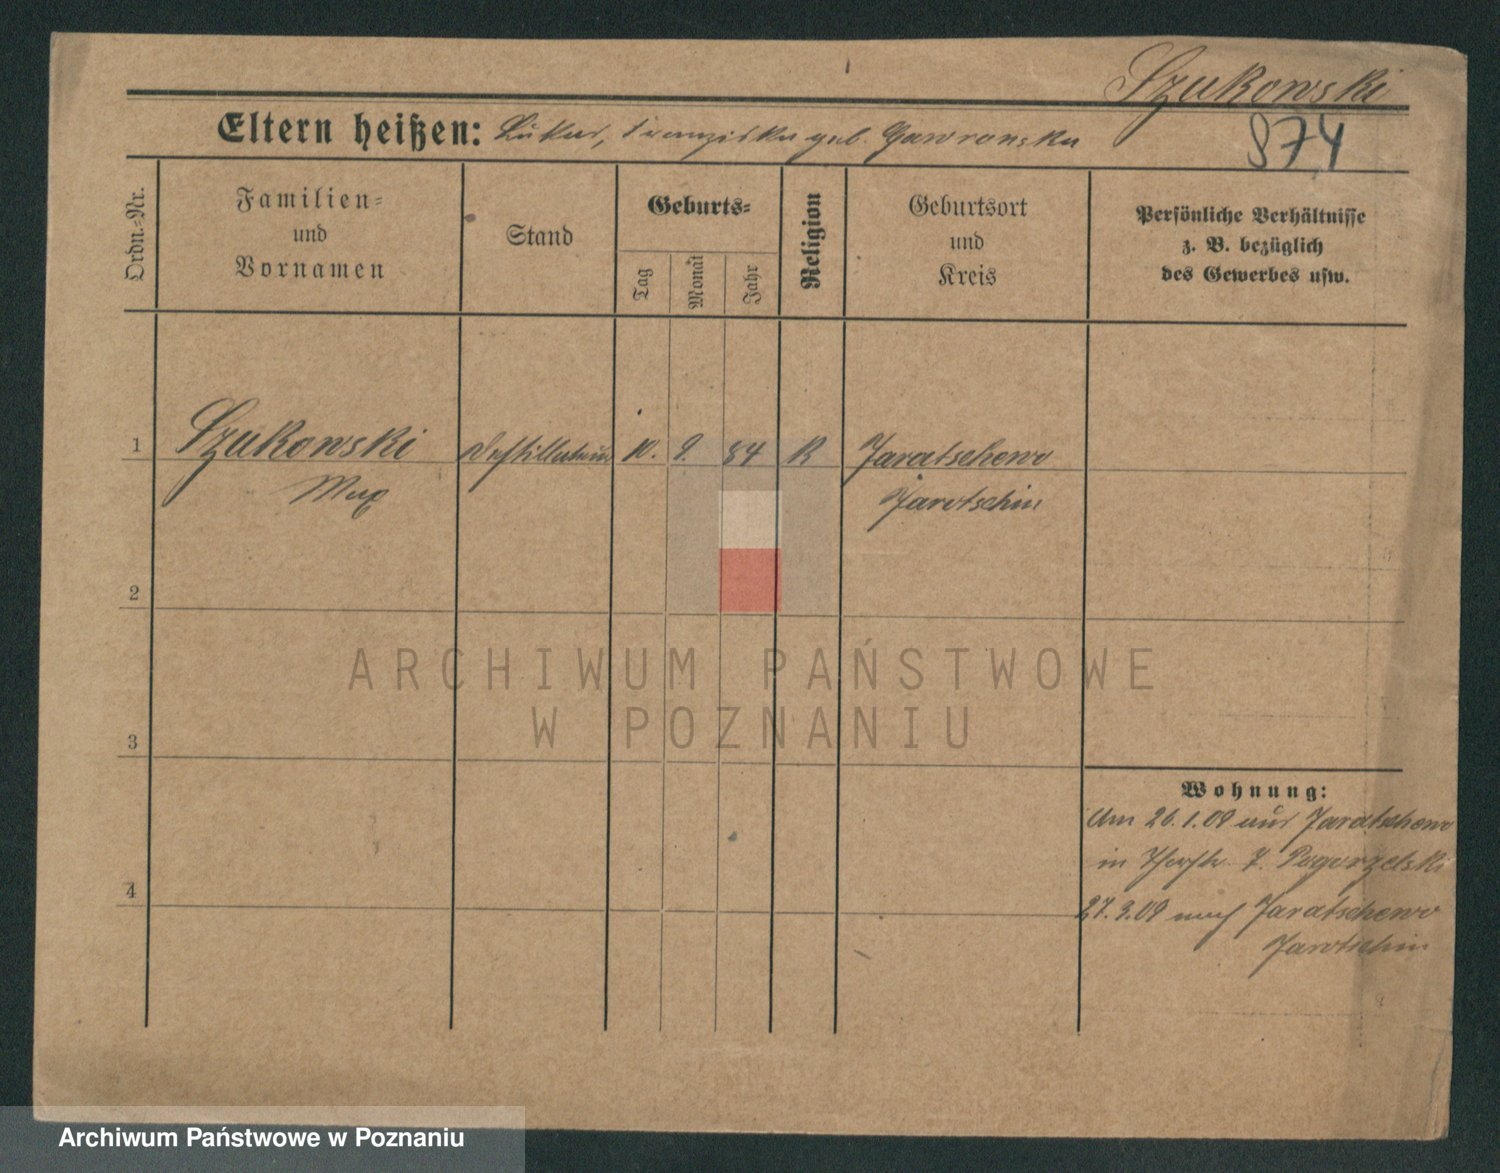 Szukowski
Eltern heißen: Lukas, Franziska geb. Gawronska
874
Ordn.-Nr.
Familien-
und
Vornamen
Stand
Geburts-
Tag
Monat
Jahr
Religion
Geburtsort
und
Kreis
Persönliche Verhältnisse
z. B. bezüglich
des Gewerbes usw.
1 Szukowski 10. 9. 84 K Jaratschewo
Max Jarotschin
2
ARCHIWUM PAŃSTWOWE
W POZNANIU
3
Wohnung:
Am 26.1.09 aus Jaratschewo
in Pogorzelski
4
27.3.09 nach Jaratschewo
Jarotschin
Archiwum Państwowe w Poznaniu